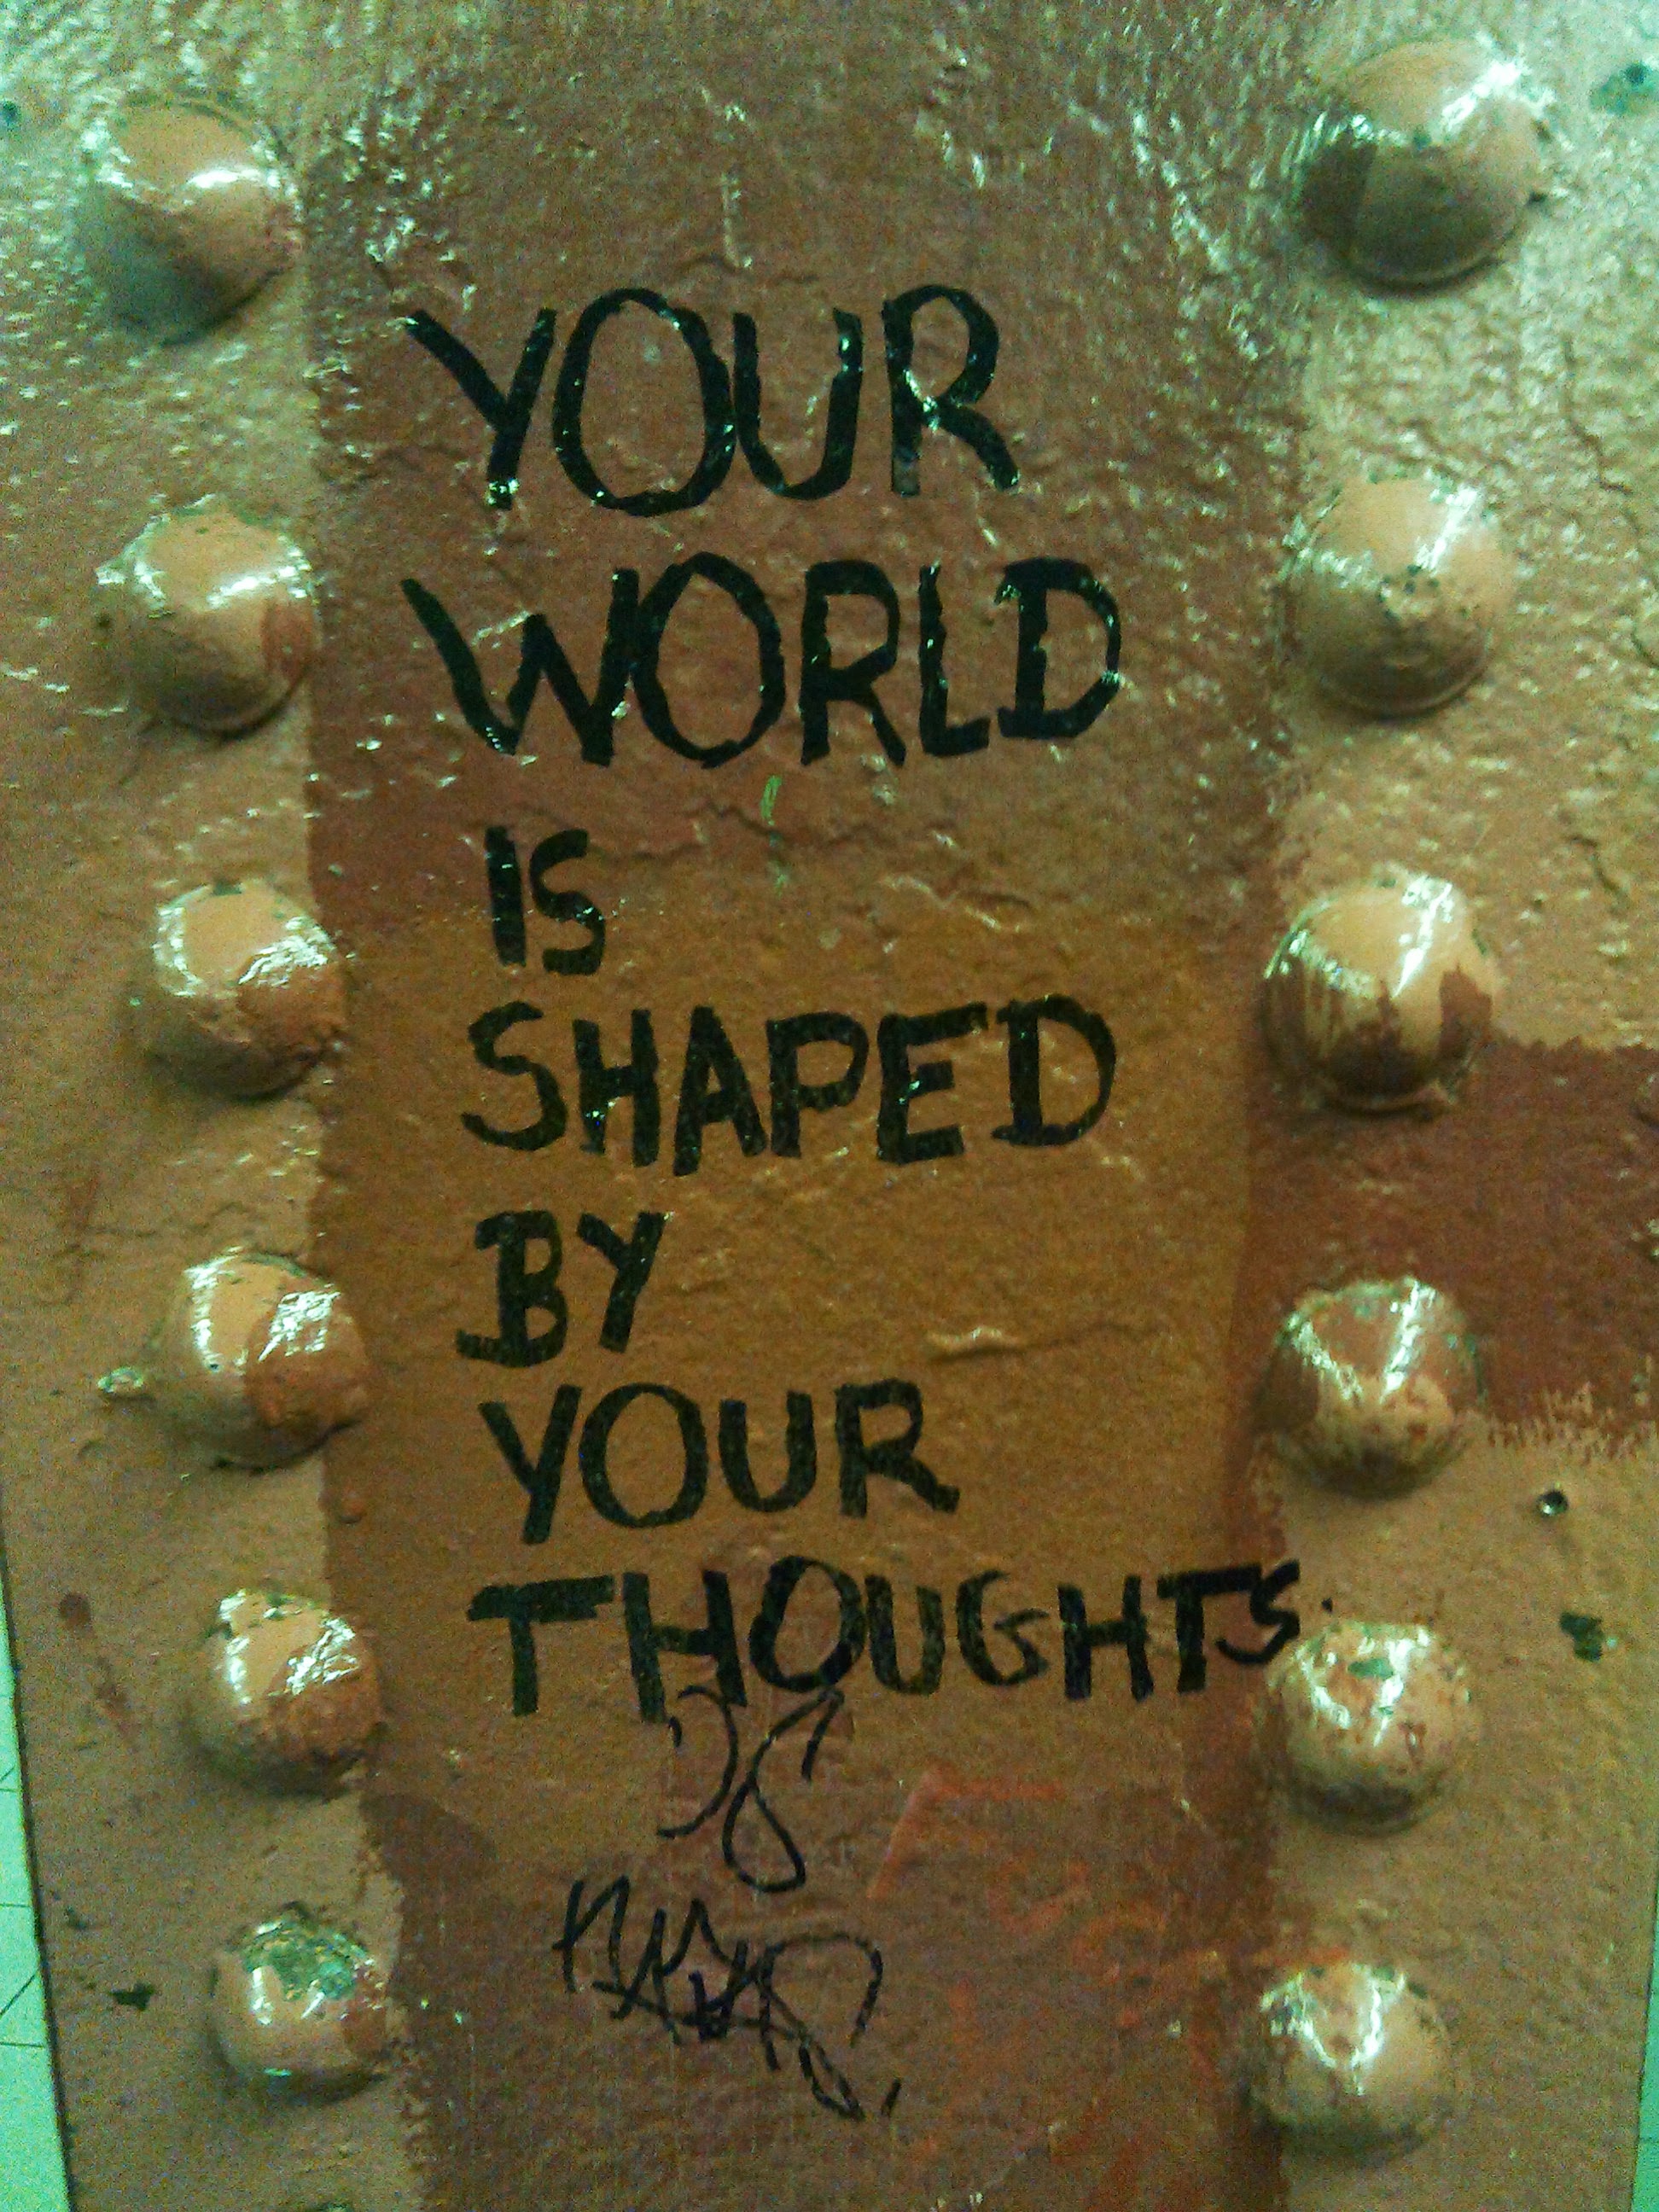 YOUR
WORLD
IS
SHAPED
BY
YOUR
THOUGHTS.